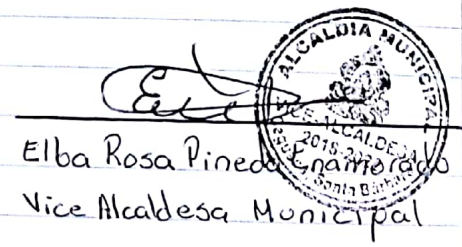 ALCALDIA MUNICIPAL
VICE-ALCALDESA
2018-
Santa Bárbara
Elba Rosa Pineda Enamorado
Vice Alcaldesa Municipal